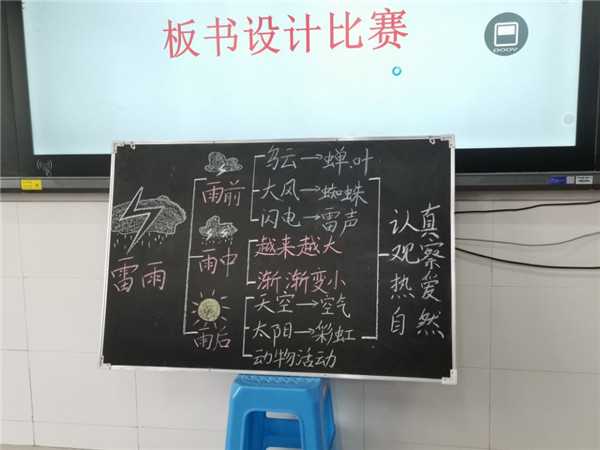 板书设计比赛
雷雨
雨前
乌云→蝉.叶
大风→蜘蛛
闪电→雷声
雨中
越来越大
渐渐变小
雨后
天空→空气
太阳→彩虹
动物活动
认真
观察
热爱
自然